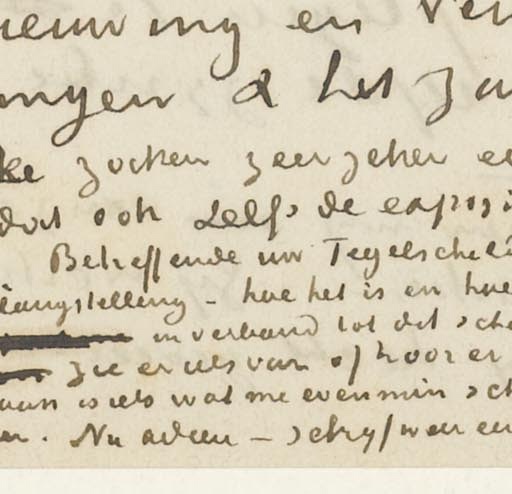 ieuwing en ver
ingen & het za
ke zoeken zeer zeker ee
dat ook zelfs de expozi
Betreffende uw Tegelschild
langstelling - hoe het is en hoe
in verband tot dit scho
zie er iets van of hoor er
aan is iets wat me evenmin sch
en. Nu adieu - schryf weer een